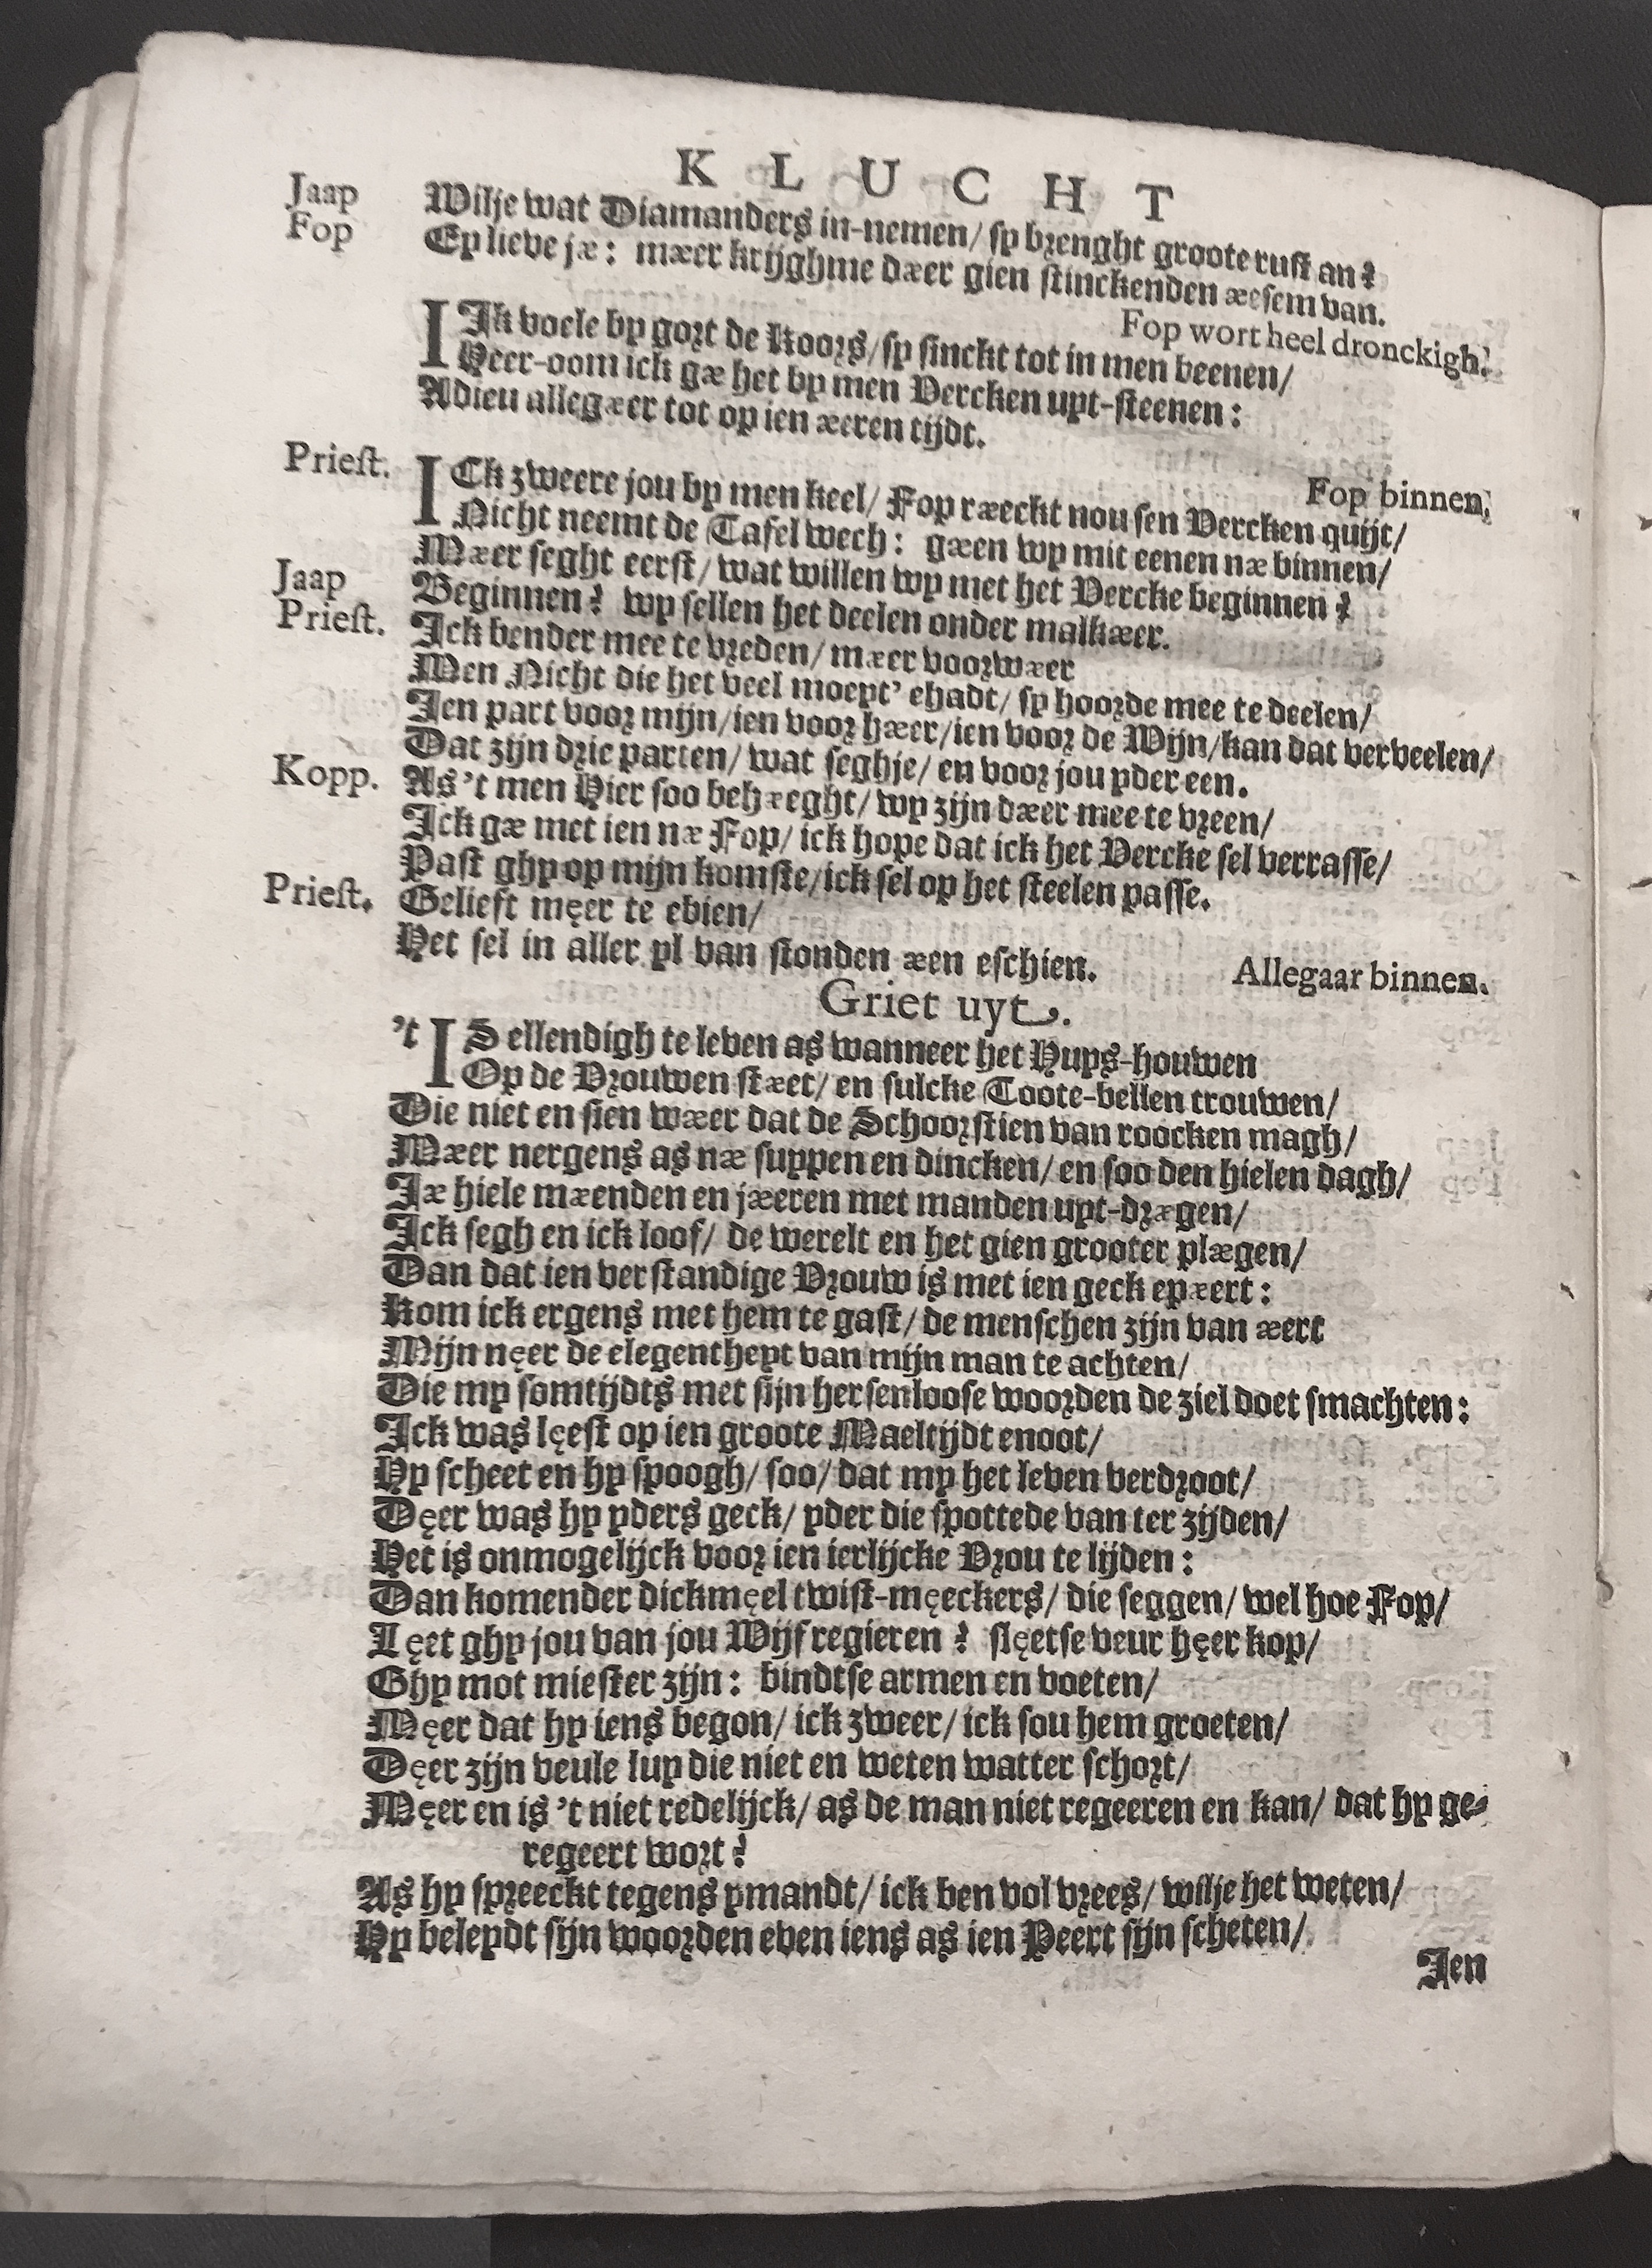 KLUCHT
Jaap Wilje wat Diamanders in-nemen/ sy brenght groote rust an?
Fop Ey lieve jæ: mæer krijghme dæer gien stinckenden æesem van.
Fop wort heel dronckigh.
IIk voele by gort de Koors/sy sinckt tot in men beenen/
Heer-oom ick gæ het by men Vercken uyt-steenen:
Adieu allegæer tot op ien æeren tijdt.
Fop binnen.
Priest. ICk zweere jou by men keel/ Fop ræeckt nou sen Vercken quijt/
Nicht neemt de Tafel wech: gæen wy mit eenen næ binnen/
Mæer seght eerst/ wat willen wy met het Vercke beginnen?
Jaap Beginnen? wy sellen het deelen onder malkæer.
Priest. Ick bender mee te vreden/ mæer voorwæer
Men Nicht die het veel moeyt' ehadt/ sy hoorde mee te deelen/
Ien part voor mijn/ien voor hæer/ien voor de Wijn/kan dat verveelen/
Dat zijn drie parten/ wat seghje/ en voor jou yder een.
Kopp. As 't men Hier soo behæeght/ wy zijn dæer mee te vreen/
Ick gæ met ien næ Fop/ ick hope dat ick het Vercke sel verrasse/
Past ghy op mijn komste/ick sel op het steelen passe.
Priest. Gelieft męer te ebien/
Het sel in aller yl van stonden æen eschien.
Allegaar binnen.
Griet uyt.
't IS ellendigh te leven as wanneer het Huys-houwen
Op de Vrouwen stæet/ en sulcke Toote-bellen trouwen/
Die niet en sien wæer dat de Schoorstien van roocken magh/
Mæer nergens as næ suypen en dincken/ en soo den hielen dagh/
Iæ hiele mæenden en jæeren met manden uyt-drægen/
Ick segh en ick loof/ de werelt en het gien grooter plægen/
Dan dat ien verstandige Vrouw is met ien geck epæert:
Kom ick ergens met hem te gast/ de menschen zijn van æert
Mijn nęer de elegentheyt van mijn man te achten/
Die my somtijdts met sijn hersenloose woorden de ziel doet smachten:
Ick was lęest op ien groote Maeltijdt enoot/
Hy scheet en hy spoogh/ soo/ dat my het leven verdroot/
Dęer was hy yders geck/ yder die spottede van ter zijden/
Het is onmogelijck voor ien ierlijcke Vrou te lijden:
Dan komender dickmęel twist-męeckers/ die seggen/ wel hoe Fop/
Lęet ghy jou van jou Wijf regieren? slęetse veur hęer kop/
Ghy mot miester zijn: bindtse armen en voeten/
Męer dat hy iens begon/ ick zweer/ ick sou hem groeten/
Dęer zijn veule luy die niet en weten watter schort/
Męer en is 't niet redelijck/ as de man niet regeeren en kan/ dat hy ge-
regeert wort?
As hy spreeckt tegens ymandt/ ick ben vol vrees/ wilje het weten/
Hy beleydt sijn woorden even iens as ien Peert sijn scheten/
Ien